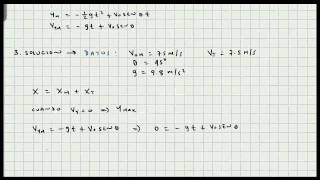 Yᴍ = -½gt² + V₀senθt
Vyᴍ = -gt + V₀senθ
3. SOLUCION ⇒ DATOS: V₀ᴍ = 75 m/s Vᴛ = 7.5 m/s
θ = 45°
g = 9.8 m/s²
X = Xᴍ + Xᴛ
CUANDO Vy = 0 ⇒ Yᴍᴀx
Vyᴍ = -gt + V₀senθ ⇒ 0 = -gt + V₀senθ